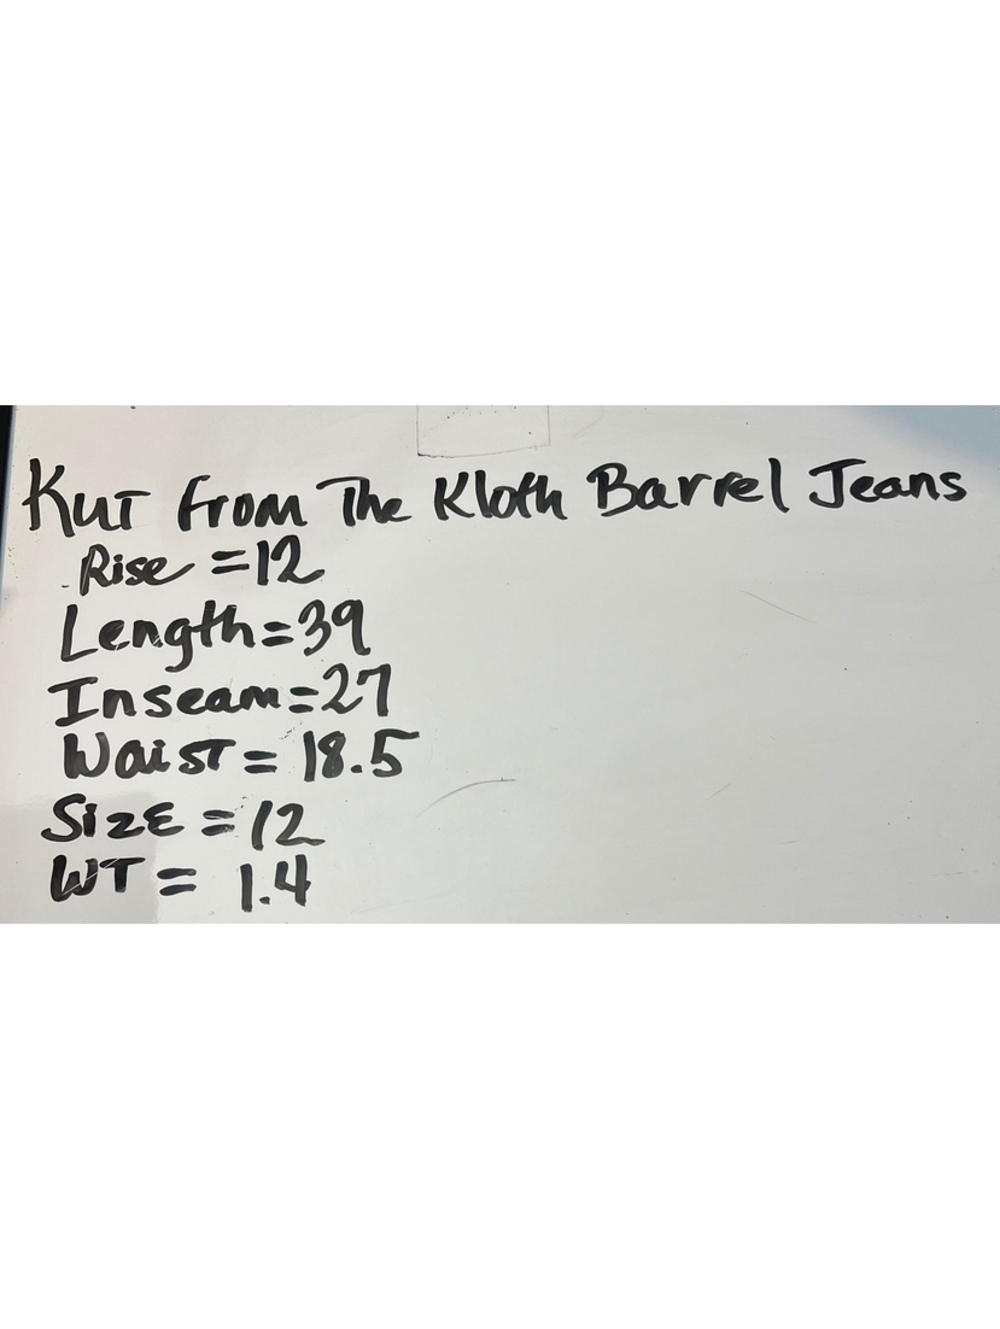 Kut from The Kloth Barrel Jeans
Rise = 12
Length = 39
Inseam = 27
Waist = 18.5
Size = 12
WT = 1.4